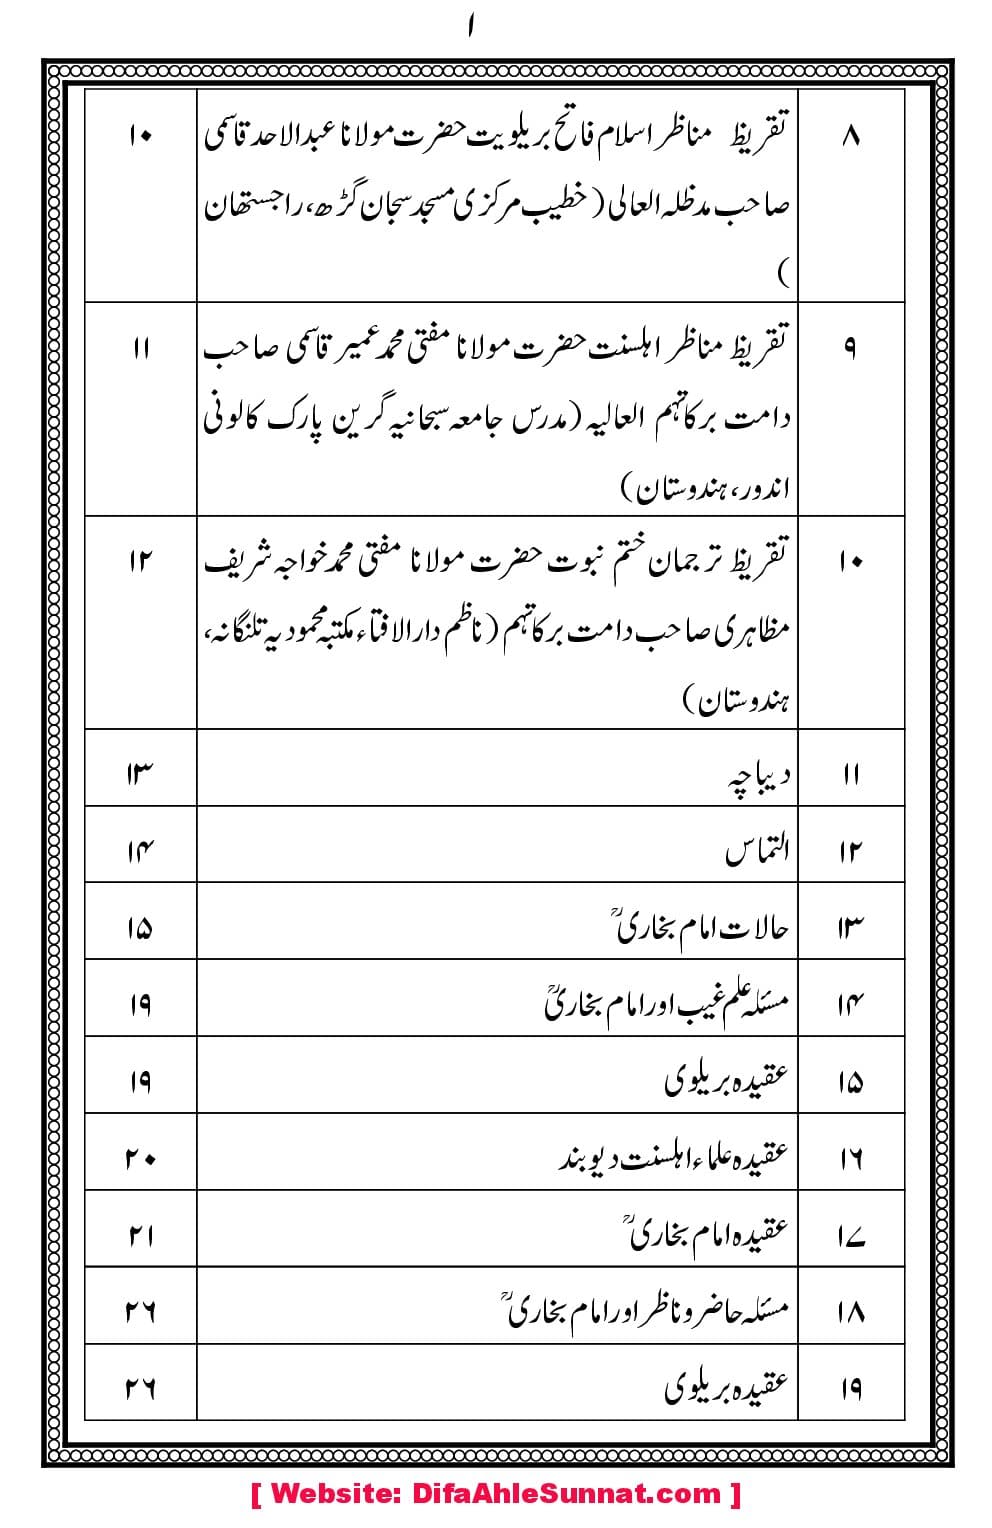 ۱
۸ تقریظ مناظر اسلام فاتح بریلویت حضرت مولانا عبدالاحد قاسمی ۱۰
صاحب مدظلہ العالی (خطیب مرکزی مسجد سجان گڑھ، راجستھان
)
۹ تقریظ مناظر اہلسنت حضرت مولانا مفتی محمد عمیر قاسمی صاحب ۱۱
دامت برکاتہم العالیہ (مدرس جامعہ سبحانیہ گرین پارک کالونی
اندور، ہندوستان)
۱۰ تقریظ ترجمان ختم نبوت حضرت مولانا مفتی محمد خواجہ شریف ۱۲
مظاہری صاحب دامت برکاتہم (ناظم دارالافتاء مکتبہ محمودیہ تلنگانہ،
ہندوستان)
۱۱ دیباچہ ۱۳
۱۲ التماس ۱۴
۱۳ حالات امام بخاریؒ ۱۵
۱۴ مسئلہ علم غیب اور امام بخاریؒ ۱۹
۱۵ عقیدہ بریلوی ۱۹
۱۶ عقیدہ علماء اہلسنت دیوبند ۲۰
۱۷ عقیدہ امام بخاریؒ ۲۱
۱۸ مسئلہ حاضر و ناظر اور امام بخاریؒ ۲۶
۱۹ عقیدہ بریلوی ۲۶
[ Website: DifaAhleSunnat.com ]